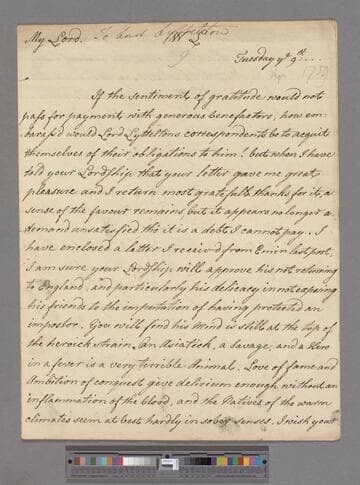 My Lord. To Lord Lyttelton
9
Tuesday ye 9th....
If the sentiment of gratitude would not
pass for payment with generous benefactors, how em:
barass'd would Lord Lytteltons correspondents be to acquit
themselves of their obligations to him! but when I have
told your Lordship that your letter gave me great
pleasure and I return most gratefull thanks for it, a
sense of the favour remains, but it appears no longer a
demand unsatisfied tho it is a debt I cannot pay. I
have enclosed a letter I receiv'd from Emin last post,
I am sure your Lordship will approve his not returning
to England, and particularly his delicacy in not exposing
his friends to the imputation of having protected an
impostor. You will find his Mind is still at the top of
the heroick strain. An Asiatick, a Savage, and a Hero
in a fever is a very terrible Animal. Love of fame and
Ambition of conquest give delirium enough without an
inflammation of the blood, and the Natives of the warm
climates seem at best hardly in sober senses. I wish your